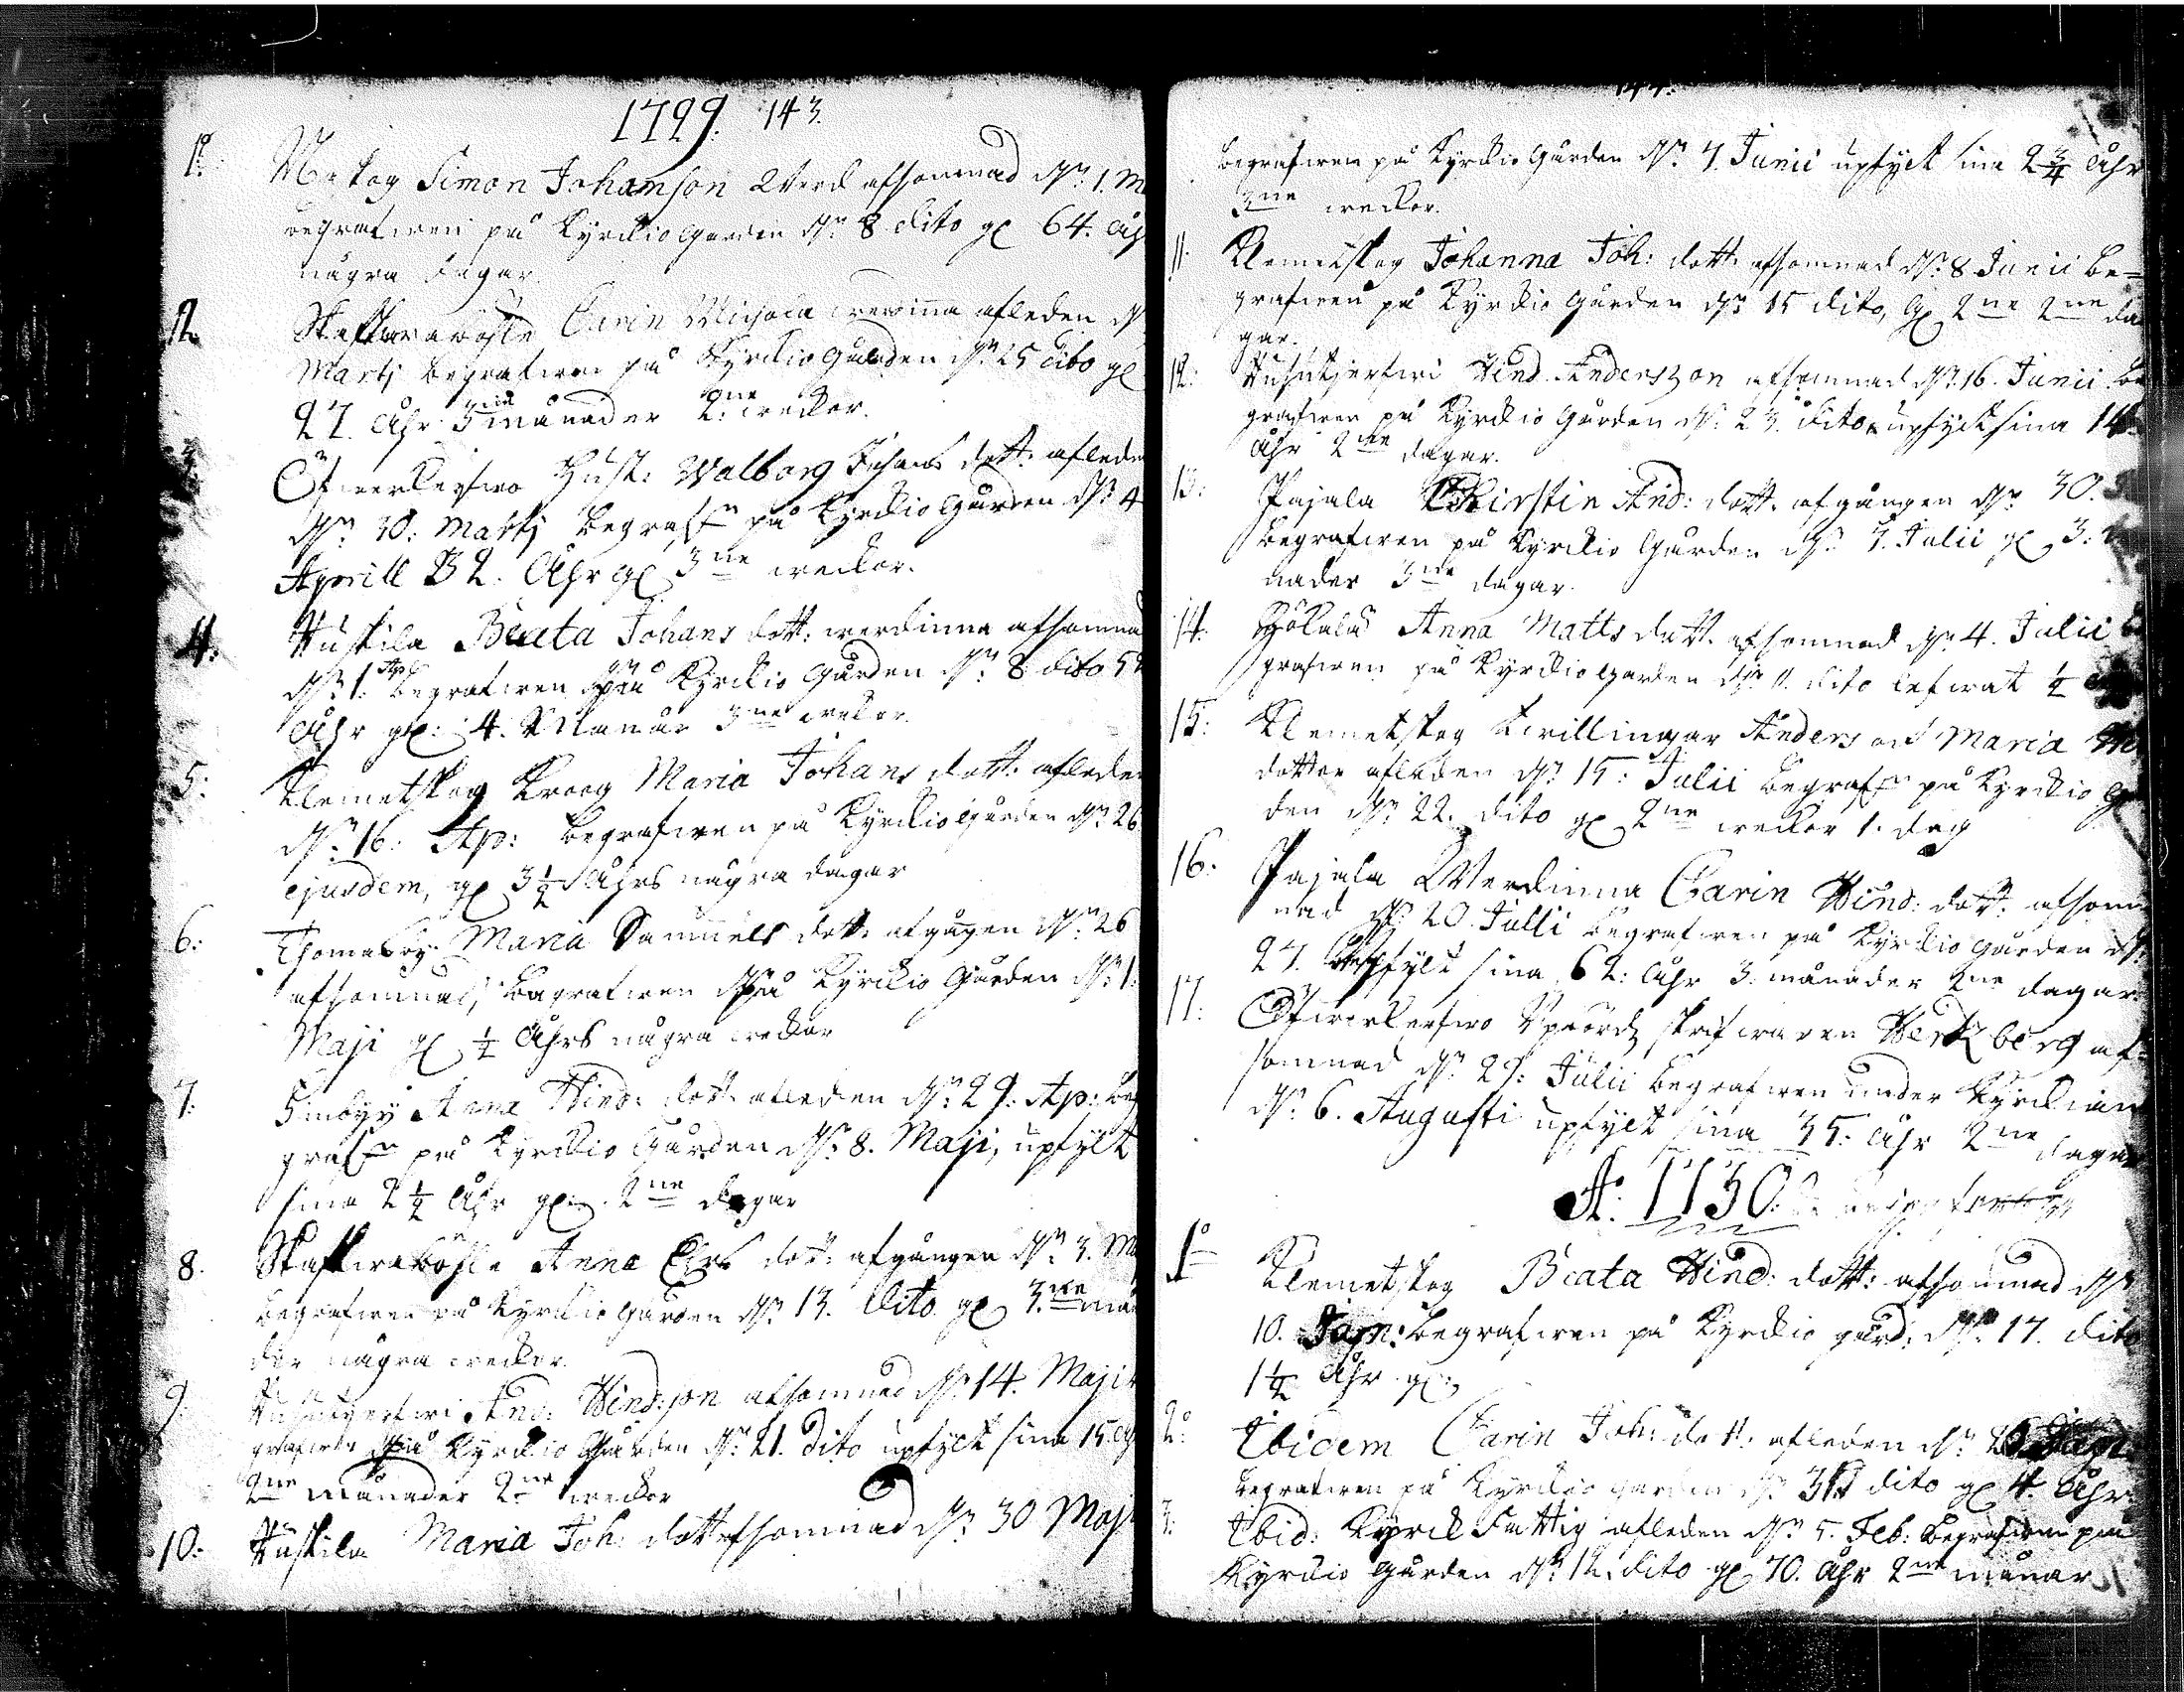 1729. 143.
1º. Simon Johansson Werd afsomnad d. 1. M
begrafwen på Kyrckiogården d. 8 dito gl 64. åh
några dagar.
2. Carin Michola werdinna afleden d
Martj begrafwen på Kyrckiogården d. 25 dito gl
27. Åhr 3 månader 2ne weckor.
Öfwerkerfwo Hust: Walborg Johans dott: aflede
d. 30. Martj begrafn på Kyrckiogården d. 4
Aprill 32. Åhr gl 3ne weckor.
4. Huskila Beata Johans dott: werdinna afsomna
d. 1. Apl begrafwen på Kyrckiogården d. 8 dito
Åhr gl: 4. Månar 3ne weckor.
5. Klemetskog Kroog Maria Johans dott: aflede
d. 16. Ap: begrafwen på Kyrckiogården d. 26
ejusdem, gl 3½ Åhrs några dagar
6. Thomasby. Maria Samuels dott: afgågen d. 26
afsomnad, begrafwen på Kyrckiogården d. 1.
Maji gl ½ Åhrs några weckor
7. Finbyy Anna Hind: dott: afleden d. 29. Ap: be
grafn på Kyrckiogården d. 8. Maji, upfylt
sina 2½ Åhr gl. 2ne dagar
8. Anna Ers dott: afgången d. 3. Ma
begrafwen på Kyrckiogården d. 13. dito gl 3ne må
der några weckor.
9. And: Hind:son afsomnad d. 14. Maji
grafwen på Kyrckiogården d. 21. dito upfylt sina 15. åh
2ne månader 2ne weckor
10. Huskila Maria Joh: dott afsomnad d. 30 Maj
begrafwen på Kyrckiogården d. 7. Junii upfylt sina 2¾ Åhr
3ne weckor.
11. Klemetskog Johanna Joh: dott: afsomnad d. 8 Junii be=
grafwen på Kyrckiogården d. 15 dito, gl 2ne 2ne da
gar.
12. Hind. Anderszon afsomnad d. 16. Junii be
grafwen på Kyrckiogården d. 23. dito upfylt sina 14.
Åhr 2ne dagar.
13. Pajala Kirstin And: dott: afgången d. 30.
begrafwen på Kyrckiogården d. 7. Julii gl 3.
nader 3ne dagar.
14. Anna Matts dott: afsomnad d. 4. Julii
grafwen på Kyrckiogården d. 11. dito lefwat ½
15. Klemetskog twillingar Anders och Maria
dotter afleden d. 15: Julii begrafn på Kyrckio gå
den d. 22. dito gl 2ne weckor 1. dag
16. Pajala Werdinna Carin Hind: dott: afsom
nad d. 20. Julii begrafwen på Kyrckiogården d.
27. upfylt sina 62: Åhr 3. månader 2ne dagar.
17. Öfwerkerfwo skrifwaren Hertzberg af=
somnad d. 29: Julii begrafwen under Kyrckian
d. 6. Augusti upfylt sina 35: Åhr 2ne dagar
Aº: 1730.
1º Klemetskog Beata Hind: dott: afsomnad d.
10. Jan: begrafwen på Kyrckio gård: d. 17. dito
1½ Åhr gl:
2º. Ibidem Carin Joh: dott: afleden d.
begrafwen på Kyrckiogården d. 31 dito gl 4. Åhr.
3. Ibid: Kyrck Fattig afleden d. 5. Feb: begrafwen på
Kyrckiogården d. 12. dito gl 70. Åhr 2ne månar